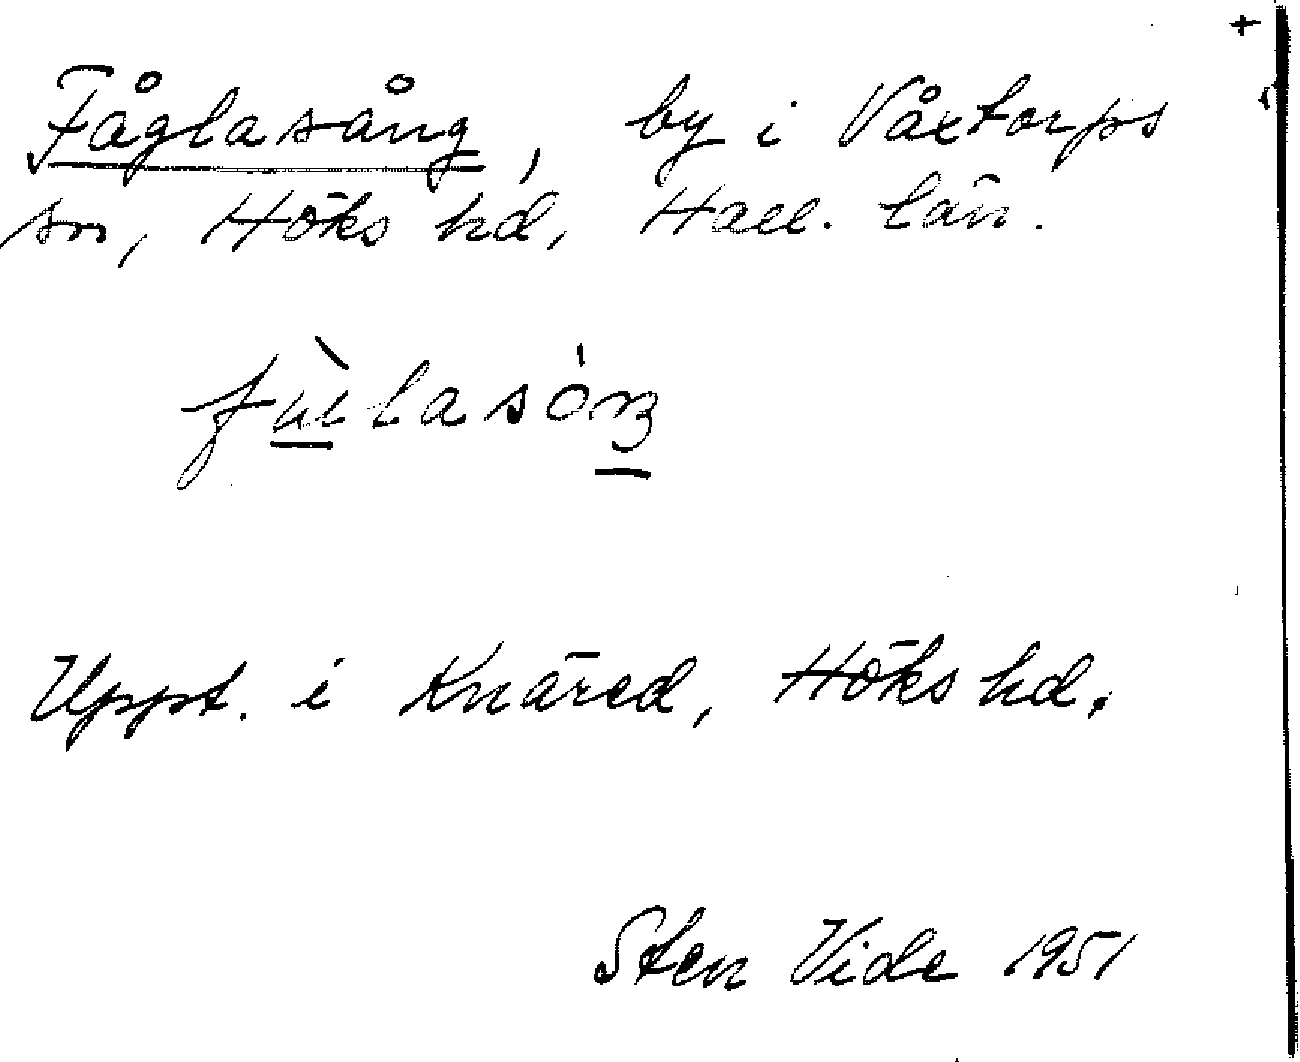 +
Fåglasång, by i Våxtorps
sn, Höks hd, Hall. län.
Uppt. i Knäred, Höks hd.
Sten Vide 1951